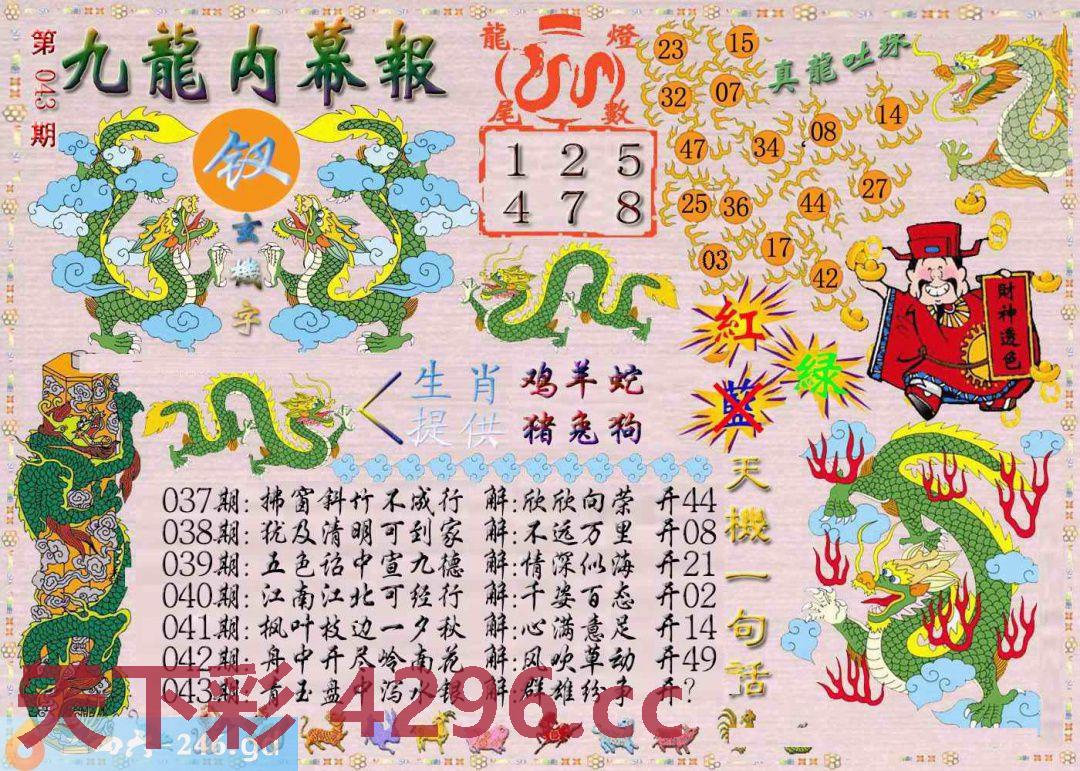 第043期
九龍内幕報
釵
玄機字
龍燈尾數
1 2 5
4 7 8
真龍吐珠
23 15
32 07
47 34 08 14
25 36 44 27
03 17 42
財神透色
紅
綠
藍
生肖 鸡羊蛇
提供 猪兔狗
天機一句话
037期: 拂窗斜竹不成行 解:欣欣向荣 开44
038期: 犹及清明可到家 解:不远万里 开08
039期: 五色诏中宣九德 解:情深似海 开21
040期: 江南江北可经行 解:千姿百态 开02
041期: 枫叶枝边一夕秋 解:心满意足 开14
042期: 舟中开尽岭南花 解:风吹草动 开49
043期: 青玉盘中泻水银 解:群雄纷争 开?
天下彩 4296.cc
=246.gd